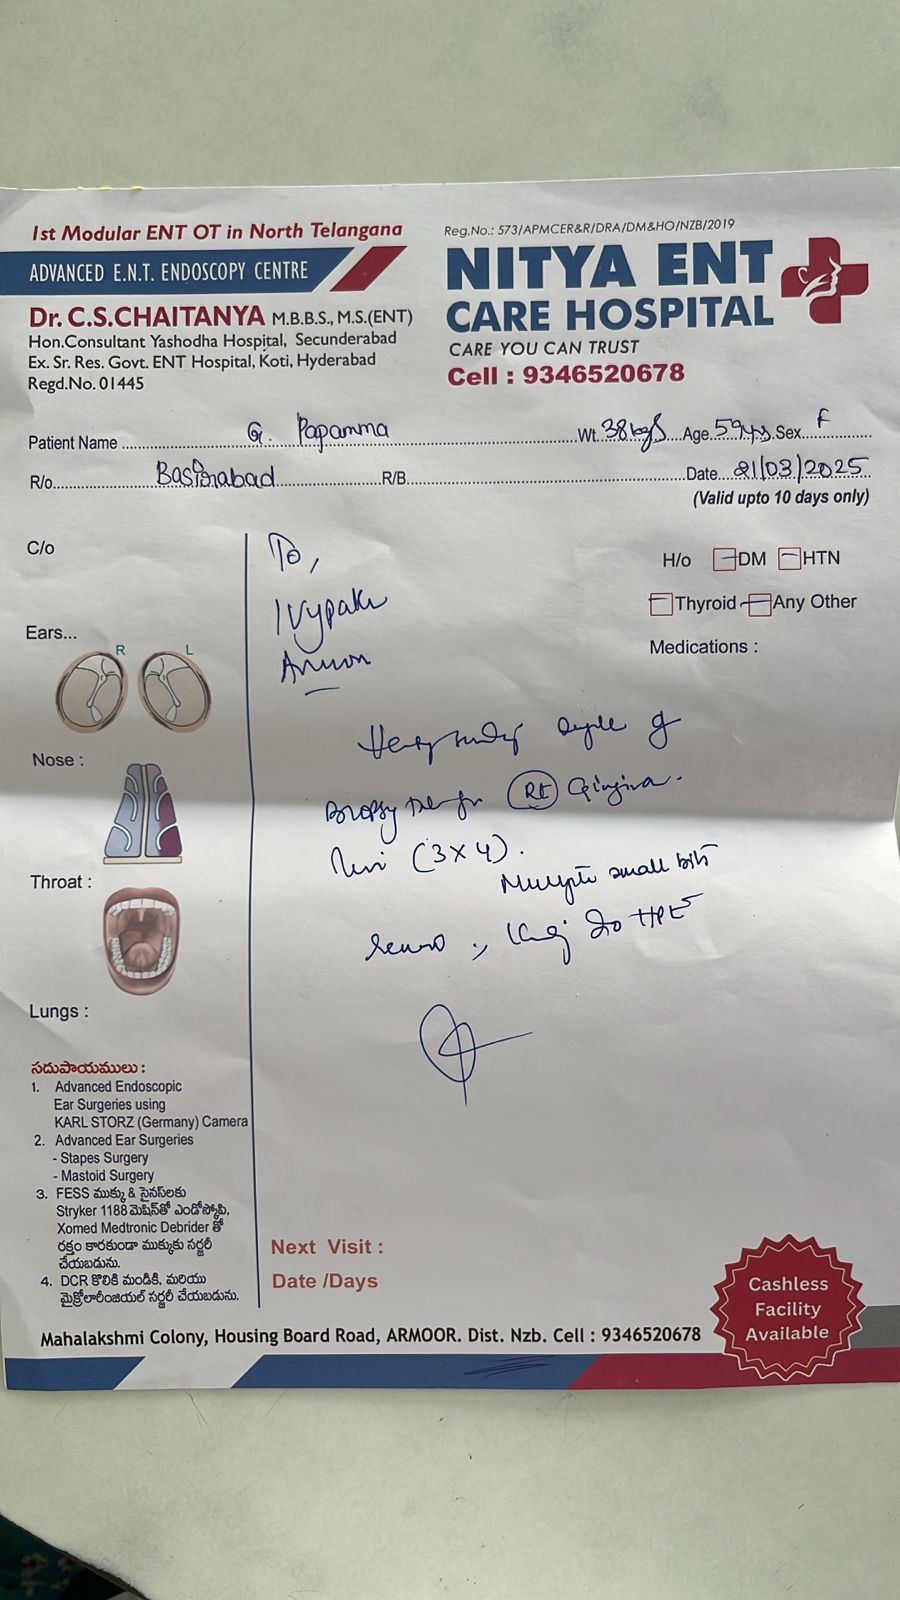 1st Modular ENT OT in North Telangana
ADVANCED E.N.T. ENDOSCOPY CENTRE
Dr. C.S.CHAITANYA M.B.B.S., M.S.(ENT)
Hon.Consultant Yashodha Hospital, Secunderabad
Ex. Sr. Res. Govt. ENT Hospital, Koti, Hyderabad
Regd.No. 01445
Reg.No.: 573/APMCER&R/DRA/DM&HO/NZB/2019
NITYA ENT
CARE HOSPITAL
CARE YOU CAN TRUST
Cell : 9346520678
Patient Name G. Papamma Wt. 38kgs Age 59yrs Sex F
R/o Basirabad R/B Date 21/03/2025
(Valid upto 10 days only)
C/o
Ears...
R L
Nose :
Throat :
Lungs :
H/o DM HTN
Thyroid Any Other
Medications :
To,
of
Biopsy Rt Gingiva.
(3x4).
Multiple small bits
HPE
సదుపాయములు :
1. Advanced Endoscopic
Ear Surgeries using
KARL STORZ (Germany) Camera
2. Advanced Ear Surgeries
- Stapes Surgery
- Mastoid Surgery
3. FESS ముక్కు & సైనస్‌లకు
Stryker 1188 మెషిన్‌తో ఎండోస్కోపి,
Xomed Medtronic Debrider తో
రక్తం కారకుండా ముక్కుకు సర్జరీ
చేయబడును.
4. DCR కొలికి మండికి, మరియు
మైక్రోలారింజియల్ సర్జరీ చేయబడును.
Next Visit :
Date /Days
Cashless
Facility
Available
Mahalakshmi Colony, Housing Board Road, ARMOOR. Dist. Nzb. Cell : 9346520678